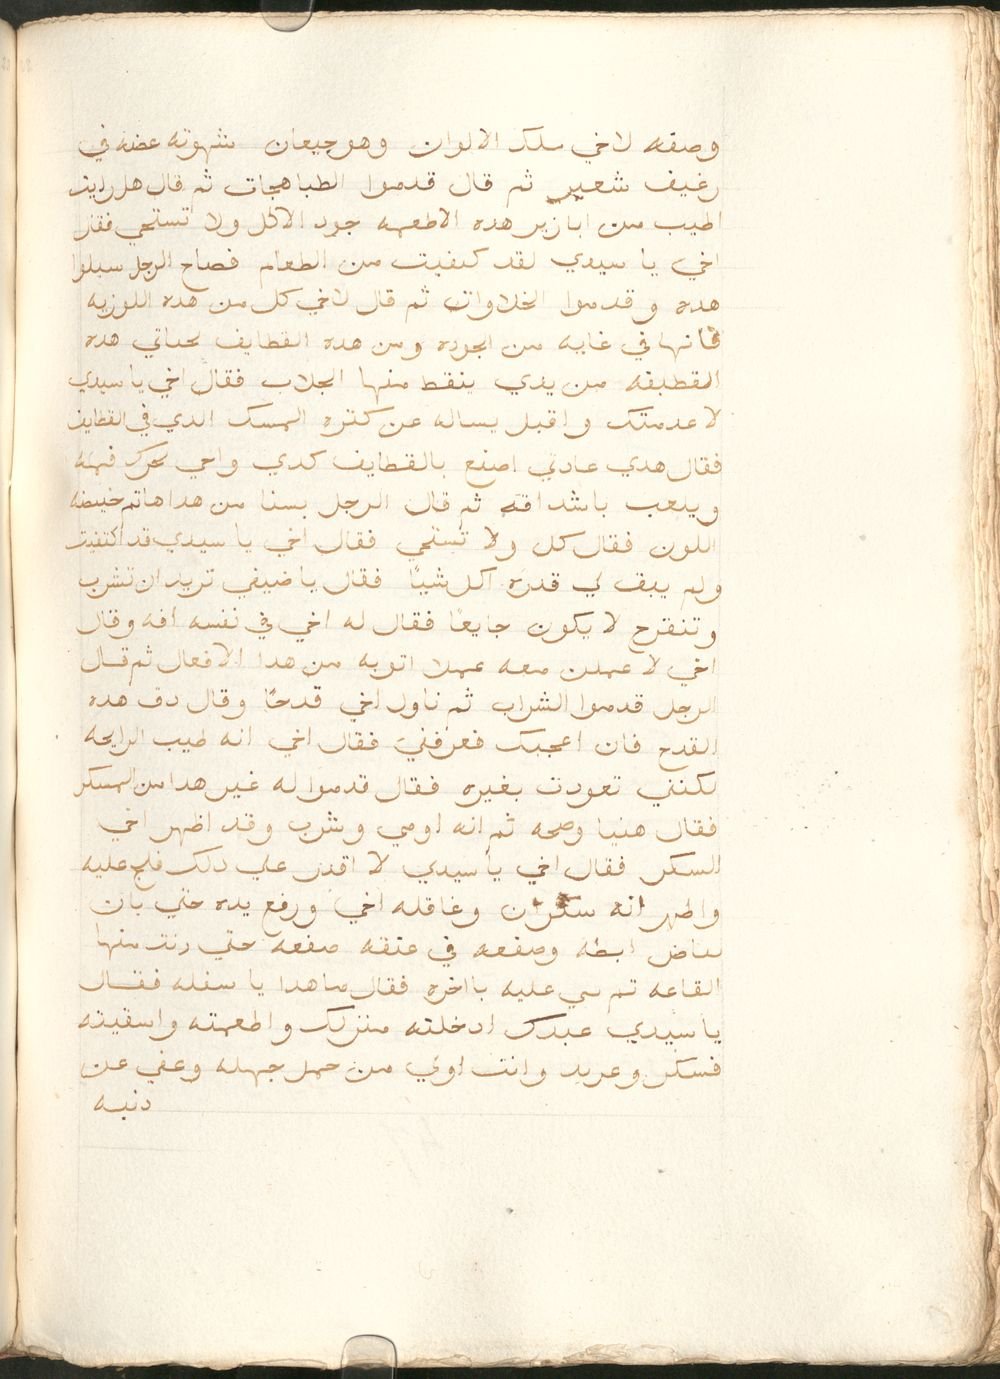 وصفه لاخي ملك الالوان وهو جيعان شهوته عضه في
رغيف شعير ثم قال قدموا الطباهجات ثم قال هل رايت
اطيب من ابازير هده الاطعمه جود الاكل ولا تستحي فقال
اخي يا سيدي لقد كتفيت من الطعام فصاح الرجل سيلوا
هده وقدموا الحلاوات ثم قال لاخي كل من هده اللوزيه
فانها في غايه من الجوده ومن هده القطايف بحياتي هده
القطيفه من يدي ينقط منها الجلاب فقال اخي يا سيدي
لا عدمتك واقبل يساله عن كتره المسك الدي في القطايف
فقال هدي عادتي اصنع بالقطايف كدي واخي يحرك فمه
ويلعب باشداقه ثم قال الرجل بسنا من هدا هاتم خبيصه
اللون فقال كل ولا تستحي فقال اخي يا سيدي قد اكتفيت
ولم يبق لي قدره اكل شيا فقال يا ضيفي تريد ان تشرب
وتنفرح لا يكون جايعا فقال له اخي في نفسه افه وقال
اخي لا عملن معه عملا اتوبه من هدا الافعال ثم قال
الرجل قدموا الشراب ثم ناول اخي قدحا وقال دق هده
القدح فان اعجبك فعرفني فقال اخي انه طيب الرايحه
لكنني تعودت بغيره فقال قدموا له غير هدا من المسكر
فقال هنيا وصحه ثم انه اومي وشرب وقد اظهر اخي
السكر فقال اخي يا سيدي لا اقدر علي دلك فلح عليه
واظهر انه سكران وغافله اخي ورفع يده حتي بان
بياض ابطه وصفعه في عنقه صفعه حتي رنت منها
القاعه تم سي عليه بااخره فقال ما هدا يا سفله فقال
يا سيدي عبدك ادخلته منزلك واطعمته واسقيته
فسكر وعربد وانت اولي من حمل جهله وعفي عن
دنبه